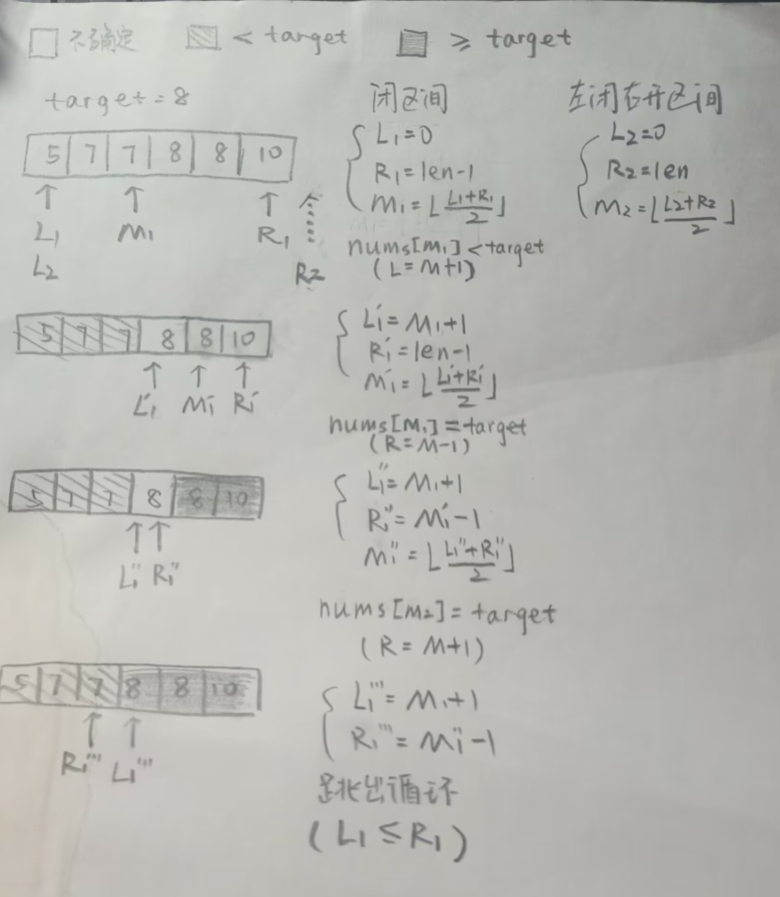 不确定 < target ≥ target
target=8 闭区间 左闭右开区间
5 7 7 8 8 10
L₁=0 L₂=0
R₁=len-1 R₂=len
M₁=⌊(L₁+R₁)/2⌋ M₂=⌊(L₂+R₂)/2⌋
L₁ M₁ R₁
L₂ R₂
nums[M₁]<target
(L=M+1)
5 7 7 8 8 10
L₁' M₁' R₁'
L₁'=M₁+1
R₁'=len-1
M₁'=⌊(L₁'+R₁')/2⌋
nums[M₁]=target
(R=M-1)
5 7 7 8 8 10
L₁'' R₁''
L₁''=M₁+1
R₁''=M₁'-1
M₁''=⌊(L₁''+R₁'')/2⌋
nums[M₂]=target
(R=M+1)
5 7 7 8 8 10
R₁''' L₁'''
L₁'''=M₁+1
R₁'''=M₁''-1
跳出循环
(L₁≤R₁)